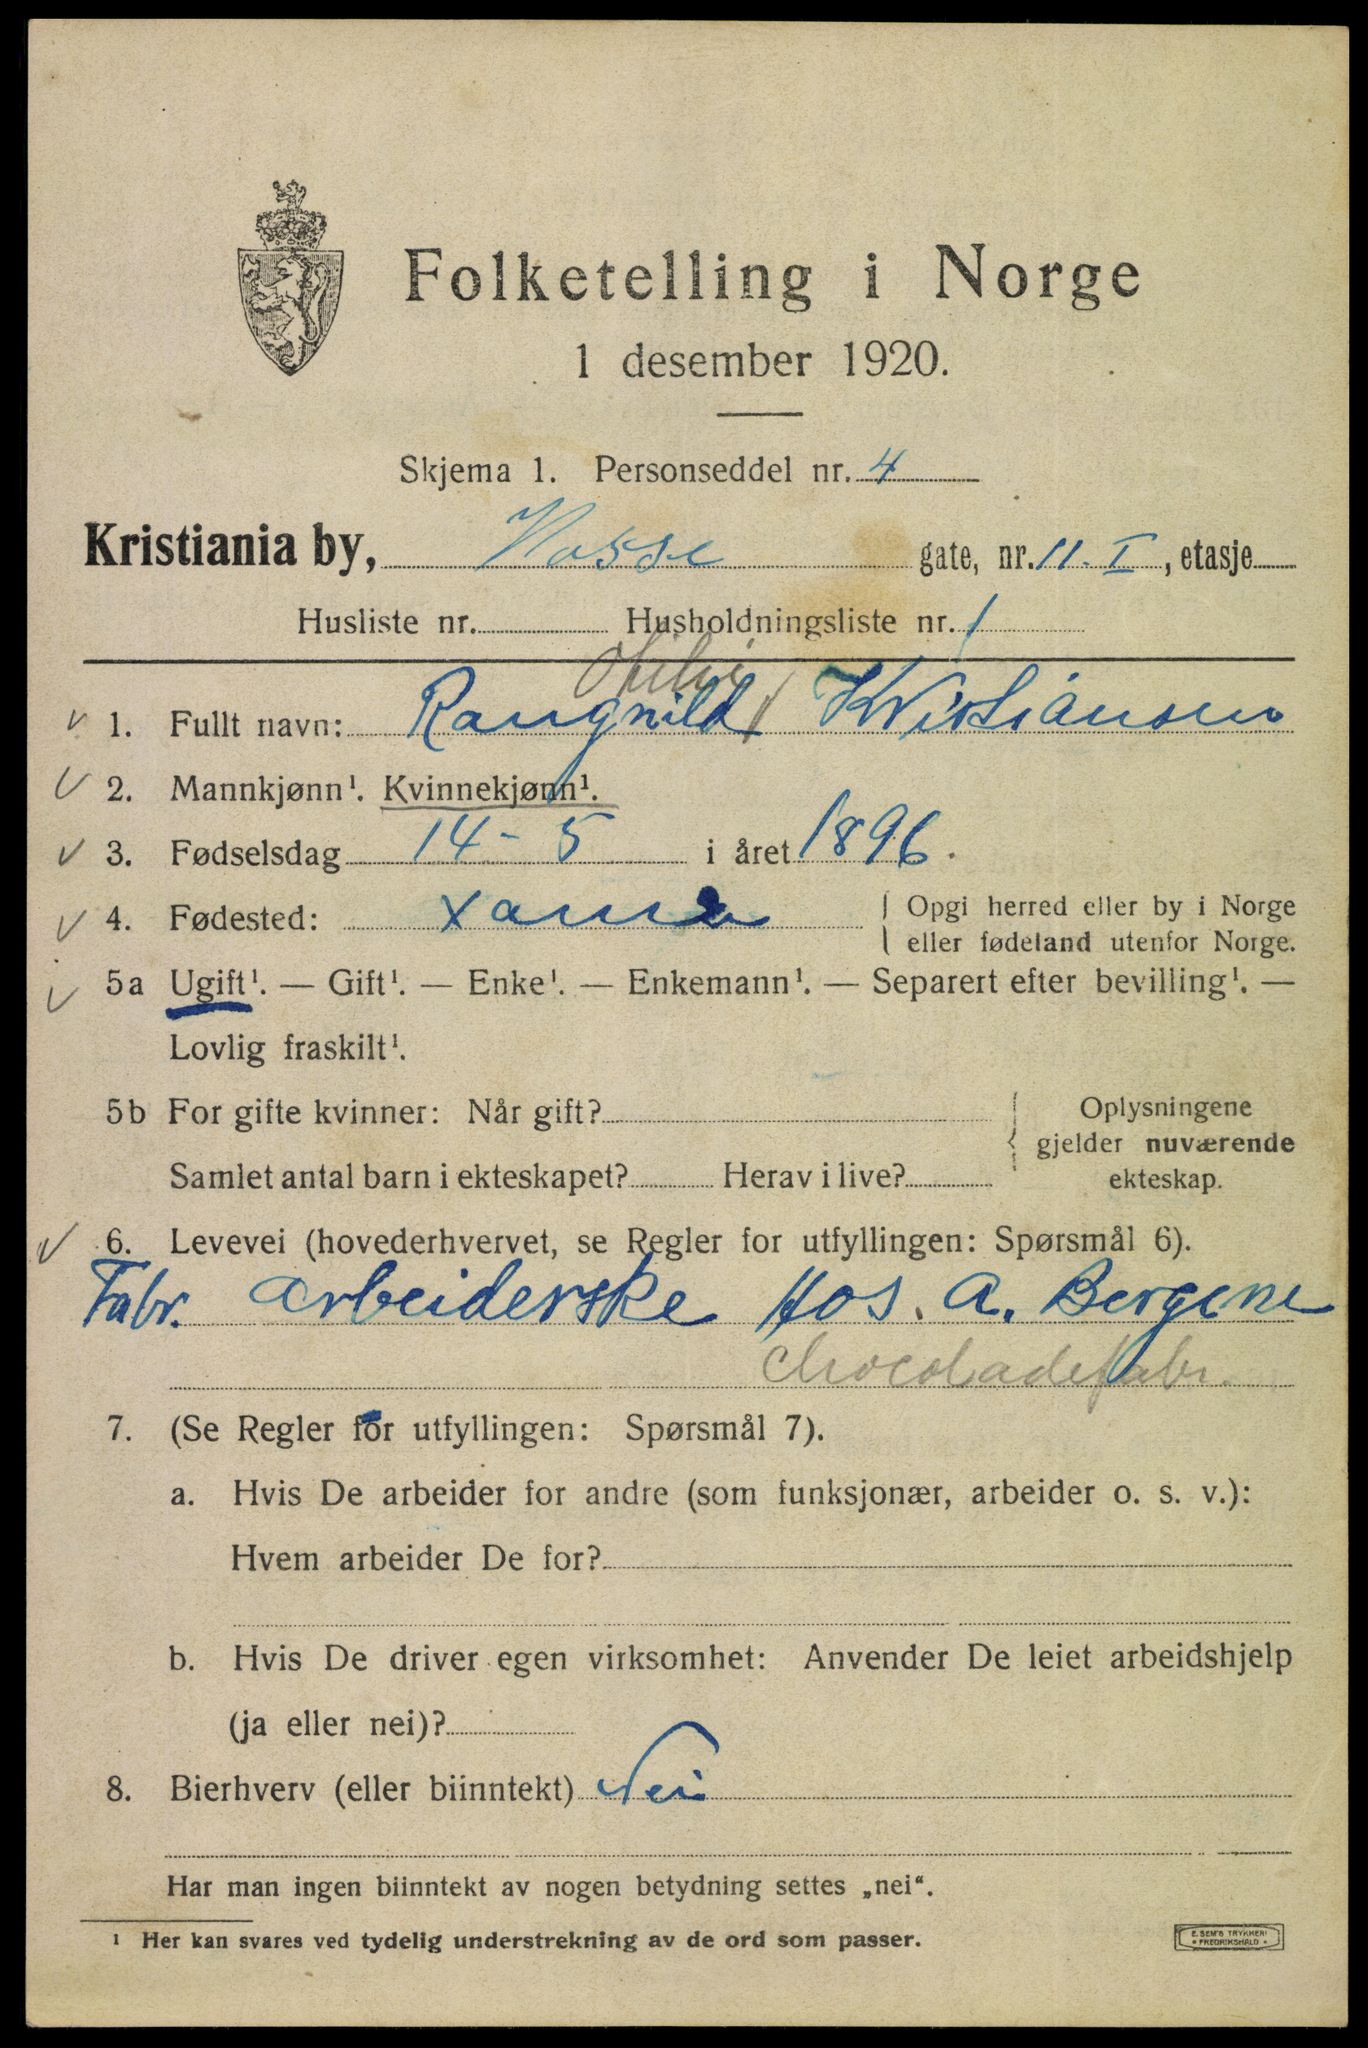 Folketelling i Norge
1 desember 1920.
Skjema 1. Personseddel nr. 4
Kristiania by, Vosse gate, nr. 11. I, etasje
Husliste nr. Husholdningsliste nr. 1
Otilie
1. Fullt navn: Rangnild Kristiansen
2. Mannkjønn¹. Kvinnekjønn¹.
3. Fødselsdag 14 - 5 i året 1896.
4. Fødested: { Opgi herred eller by i Norge
eller fødeland utenfor Norge.
5a Ugift¹. — Gift¹. — Enke¹. — Enkemann¹. — Separert efter bevilling¹. —
Lovlig fraskilt¹.
5b For gifte kvinner: Når gift? Oplysningene
gjelder nuværende
Samlet antal barn i ekteskapet? Herav i live? ekteskap.
6. Levevei (hovederhvervet, se Regler for utfyllingen: Spørsmål 6).
Fabr. arbeiderske Hos. A. Bergene
Chocoladefabr.
7. (Se Regler for utfyllingen: Spørsmål 7).
a. Hvis De arbeider for andre (som funksjonær, arbeider o. s. v.):
Hvem arbeider De for?
b. Hvis De driver egen virksomhet: Anvender De leiet arbeidshjelp
(ja eller nei)?
8. Bierhverv (eller biinntekt) Nei
Har man ingen biinntekt av nogen betydning settes „nei“.
¹ Her kan svares ved tydelig understrekning av de ord som passer.
E. SEM'S TRYKKERI
FREDRIKSHALD